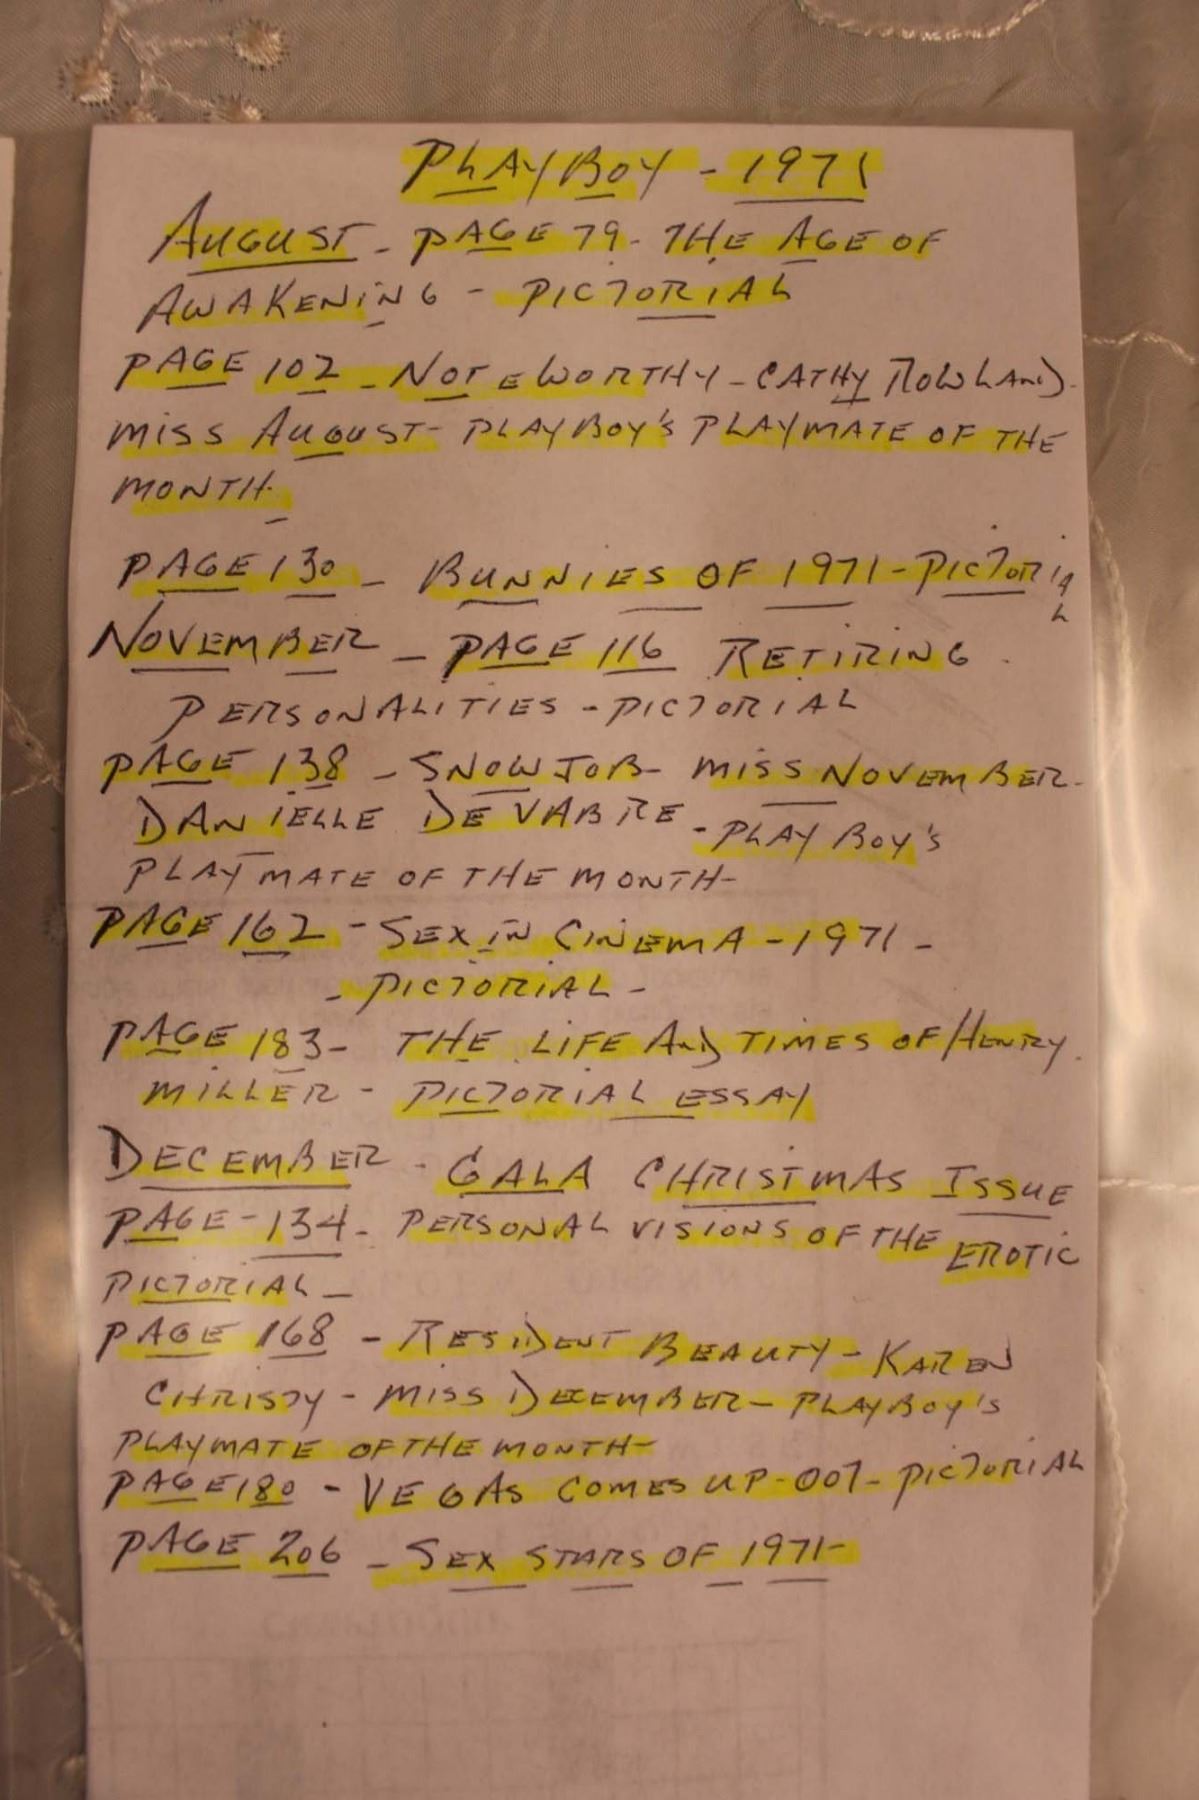 PLAYBOY - 1971
AUGUST - PAGE 79 - THE AGE OF
AWAKENING - PICTORIAL
PAGE 102 - NOTEWORTHY - CATHY ROWLAND -
MISS AUGUST - PLAYBOY'S PLAYMATE OF THE
MONTH -
PAGE 130 - BUNNIES OF 1971 - PICTORIAL
NOVEMBER - PAGE 116 RETIRING
PERSONALITIES - PICTORIAL
PAGE 138 - SNOW JOB - MISS NOVEMBER -
DANIELLE DE VABRE - PLAYBOY'S
PLAYMATE OF THE MONTH -
PAGE 162 - SEX IN CINEMA - 1971 -
- PICTORIAL -
PAGE 183 - THE LIFE AND TIMES OF HENRY
MILLER - PICTORIAL ESSAY
DECEMBER - GALA CHRISTMAS ISSUE
PAGE - 134 - PERSONAL VISIONS OF THE EROTIC
PICTORIAL -
PAGE 168 - RESIDENT BEAUTY - KAREN
CHRISTY - MISS DECEMBER - PLAYBOY'S
PLAYMATE OF THE MONTH -
PAGE 180 - VEGAS COMES UP - 007 - PICTORIAL
PAGE 206 - SEX STARS OF 1971 -